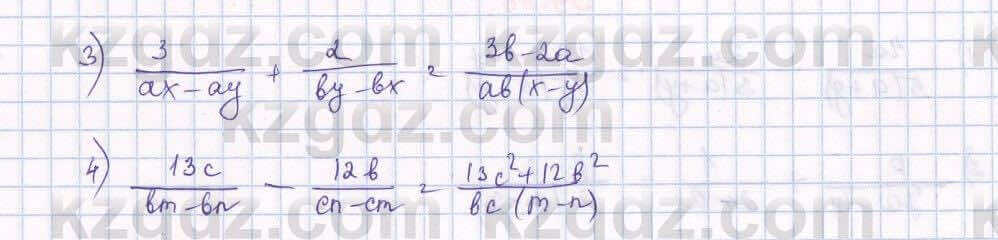 kzgdz.com kzgdz.com
3) 3/(ax - ay) + 2/(by - bx) = (3b - 2a)/(ab(x - y))
kzgdz.com
4) 13c/(bm - bn) - 12b/(cn - cm) = (13c² + 12b²)/(bc(m - n))
kzgdz.com kzgdz.com